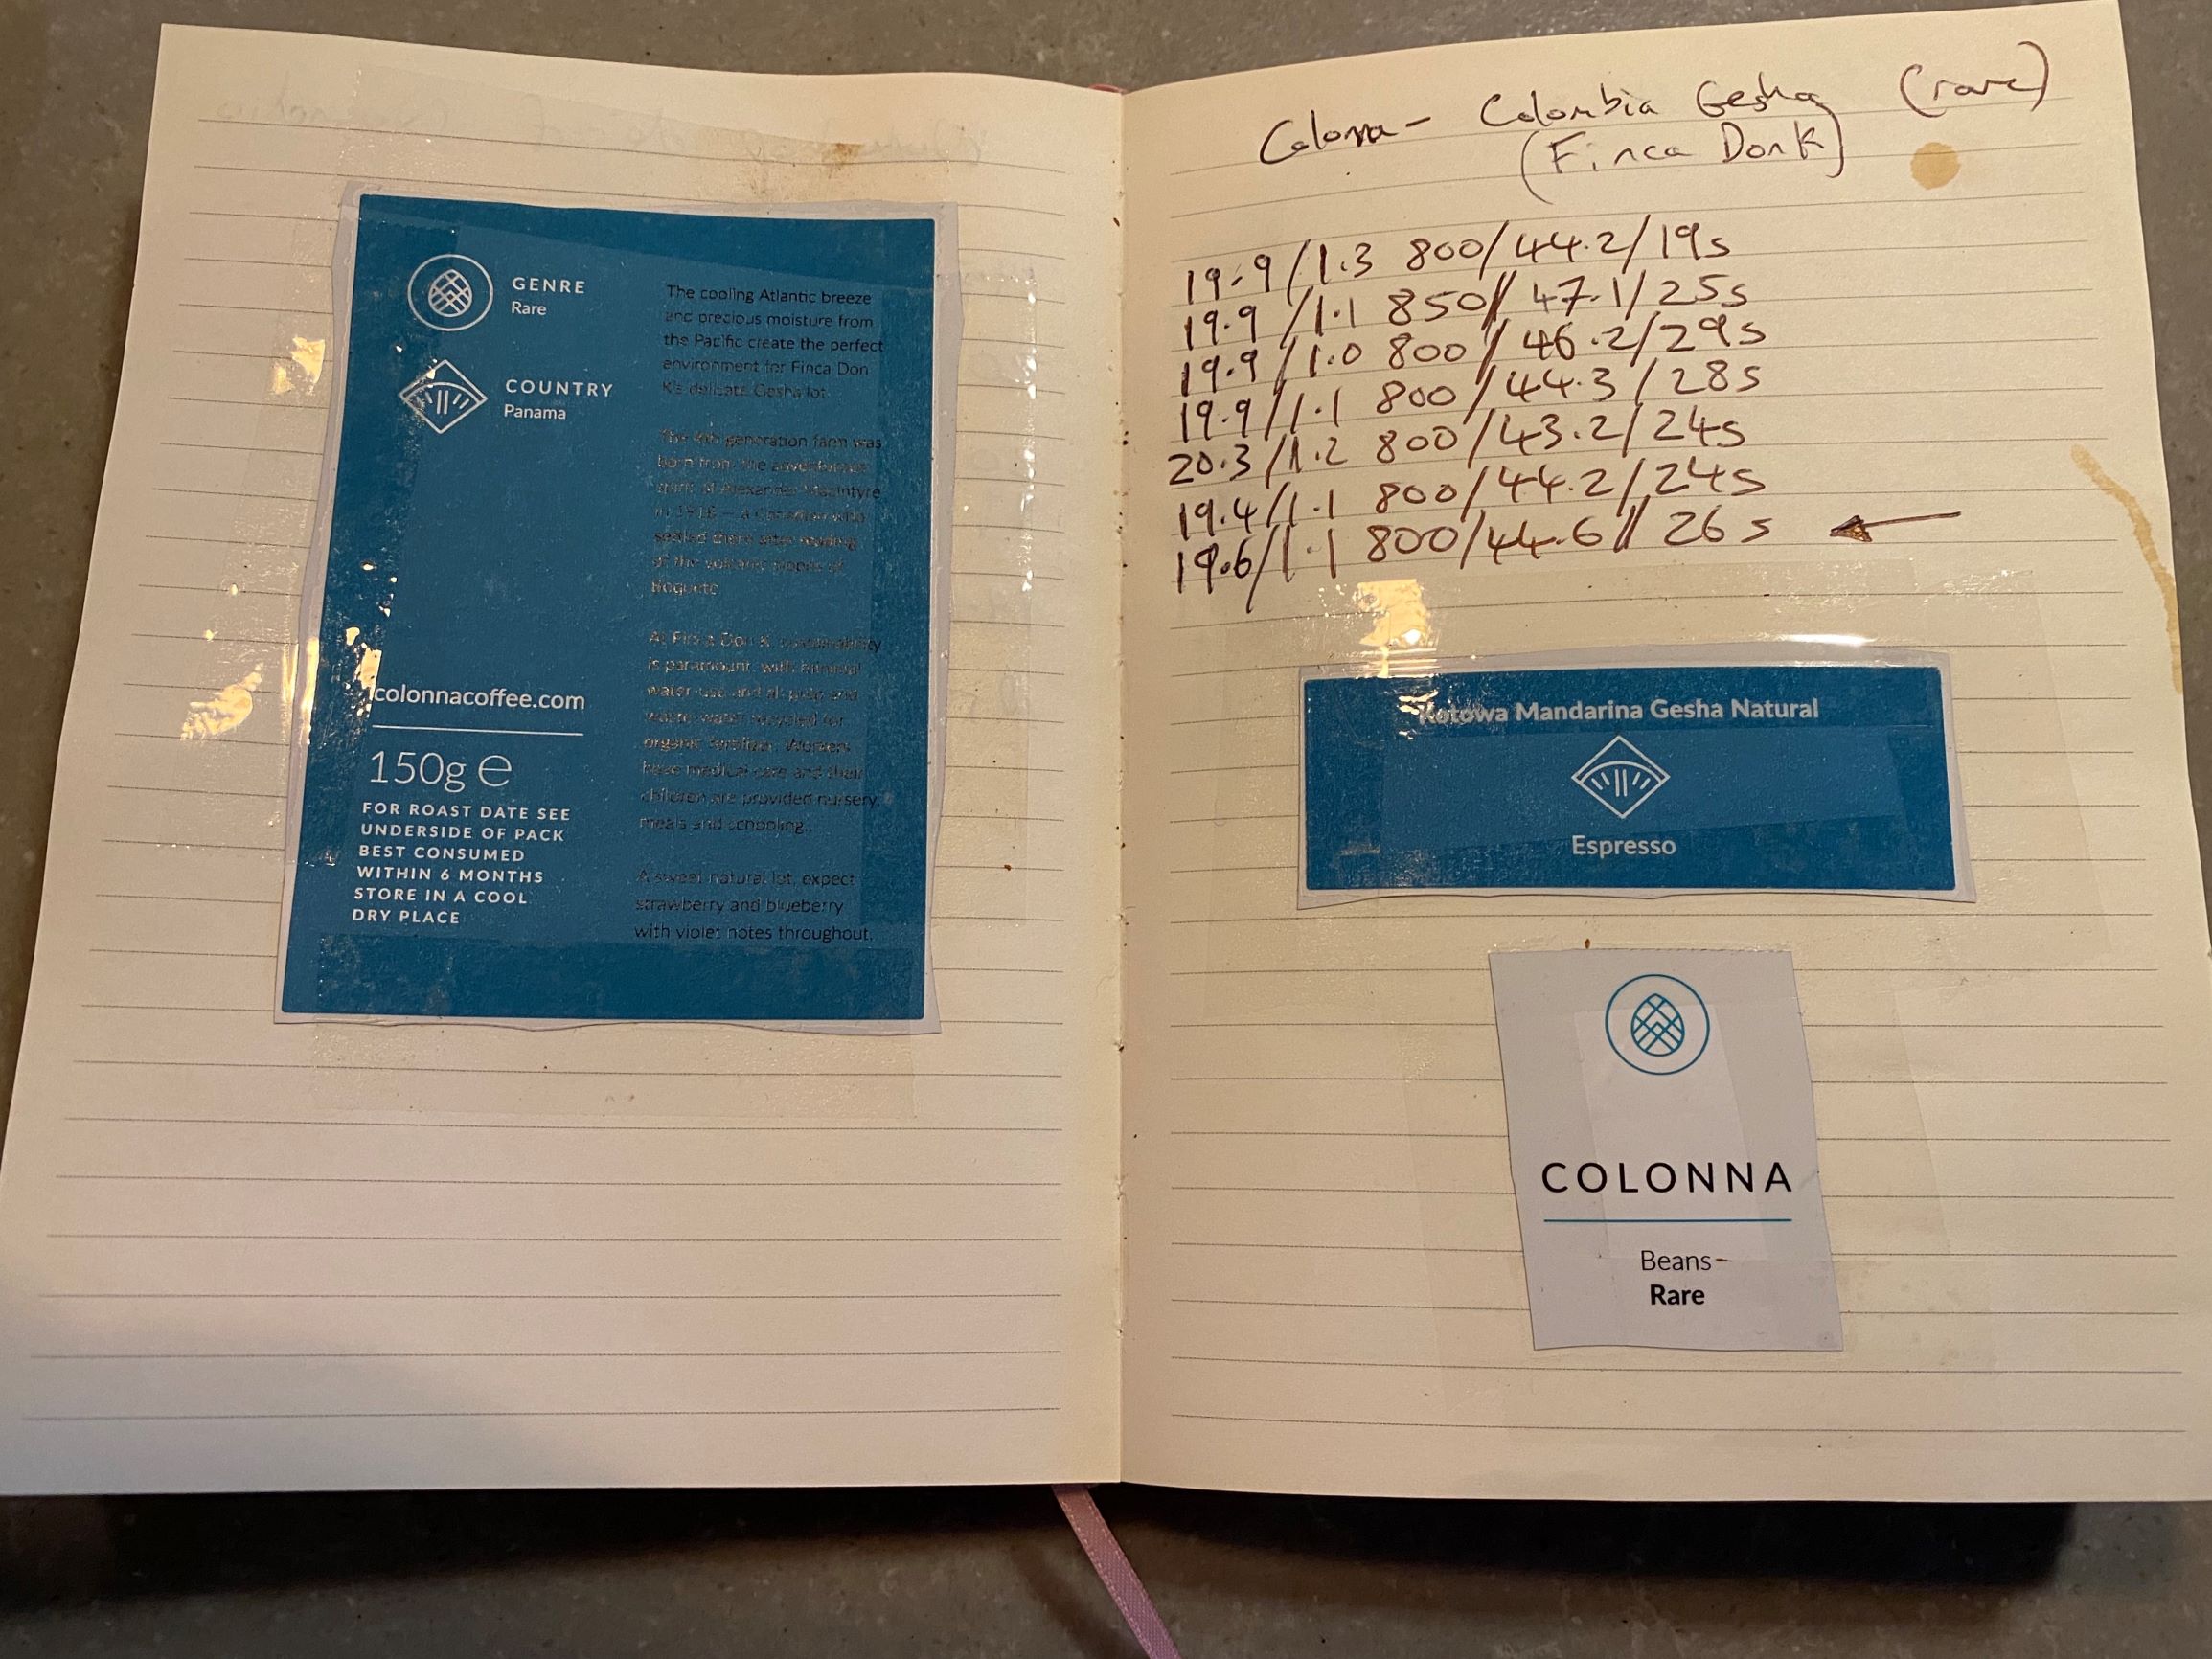 GENRE
Rare
COUNTRY
Panama
colonnacoffee.com
150g e
FOR ROAST DATE SEE
UNDERSIDE OF PACK
BEST CONSUMED
WITHIN 6 MONTHS
STORE IN A COOL
DRY PLACE
The cooling Atlantic breeze
and precious moisture from
the Pacific create the perfect
environment for Finca Don
K's delicate Gesha lot.
The 4th generation farm was
born from the
of Alexander MacIntyre
in a Canadian who
settled there after reading
of the volcanic slopes of
Boquete
At Finca Don K, sustainability
is paramount, with minimal
water use and all pulp and
waste water recycled for
organic fertilizer. Workers
have medical care and their
children are provided nursery,
meals and schooling..
A sweet natural lot, expect
strawberry and blueberry
with violet notes throughout.
Colonna - Colombia Gesha (rare)
(Finca Don K)
19.9/1.3 800/44.2/19s
19.9/1.1 850/47.1/25s
19.9/1.0 800/46.2/29s
19.9/1.1 800/44.3/28s
20.3/1.2 800/43.2/24s
19.4/1.1 800/44.2/24s
19.6/1.1 800/44.6/26s
Kotowa Mandarina Gesha Natural
Espresso
COLONNA
Beans-
Rare